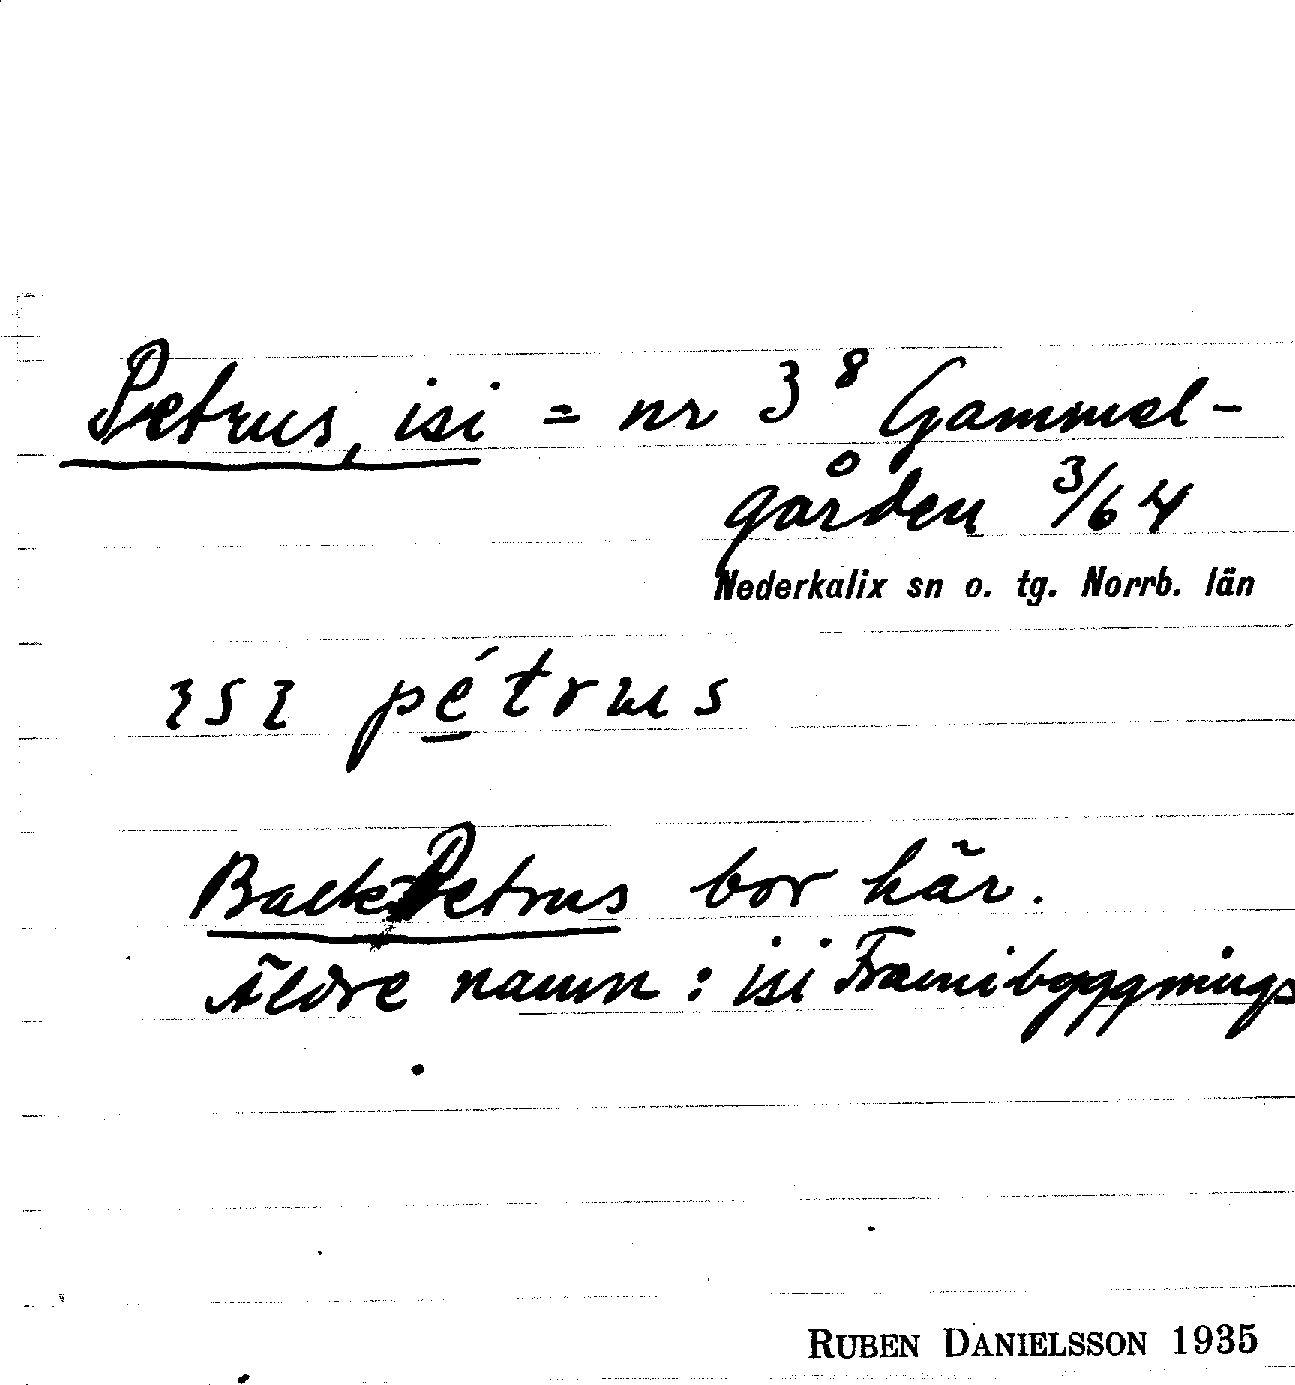 Petrus, isi = nr 3⁸ Gammel-
gården 3/64
Nederkalix sn o. tg. Norrb. län
ɩsɩ pétrus
Back-Petrus bor här.
Äldre namn: isi Framibyggnings
RUBEN DANIELSSON 1935